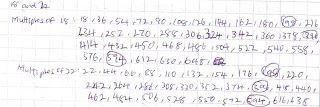 18 and 22
Multiples of 18: 18, 36, 54, 72, 90, 108, 126, 144, 162, 180, 198, 216
234, 252, 270, 288, 306, 324, 342, 360, 378, 396
414, 432, 450, 468, 486, 504, 522, 540, 558,
576, 594, 612, 630, 648
Multiples of 22: 22, 44, 66, 88, 110, 132, 154, 176, 198, 220,
242, 264, 286, 308, 330, 352, 374, 396, 418, 440
462, 484, 506, 528, 550, 572, 594, 616, 638